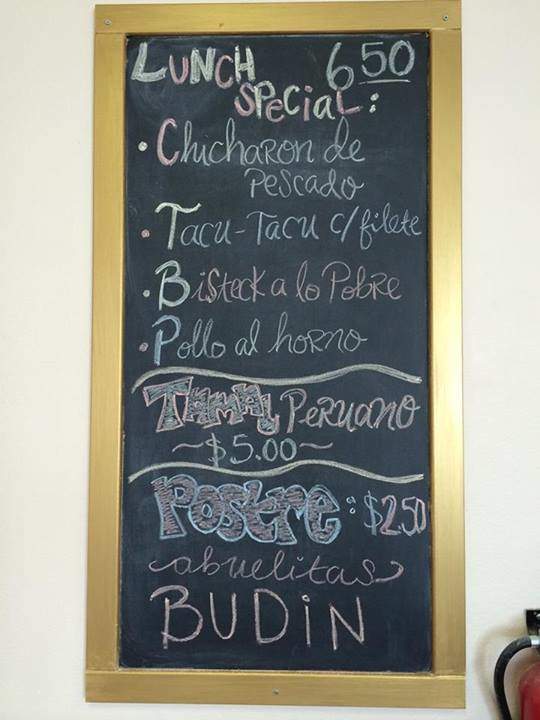 LUNCH 6 50
SPeciaL:
• Chicharon de
Pescado
• Tacu-Tacu c/filete
• Bisteck a lo Pobre
• Pollo al horno
TAMAL Peruano
~$5.00~
Postre: $2.50
abuelitas
BUDiN